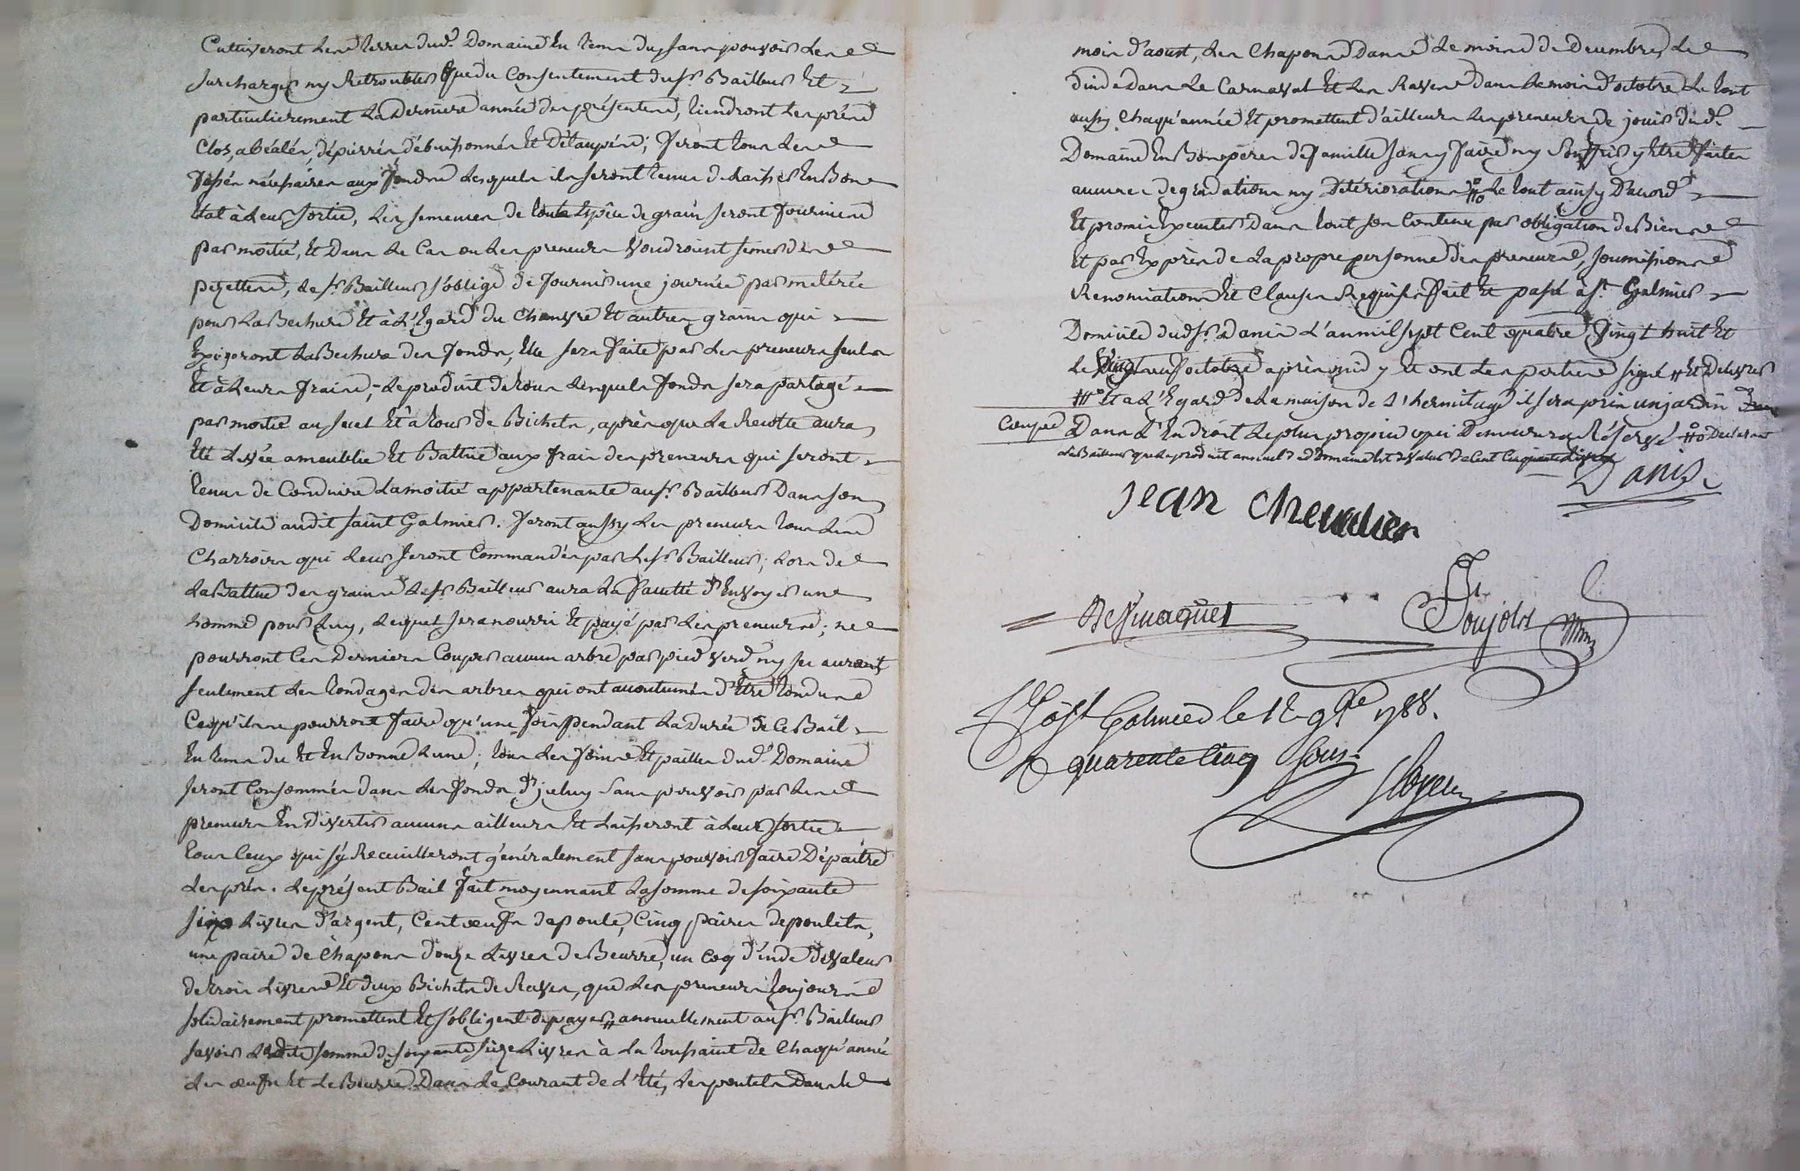 Cultiveront les terres dud.t Domaine En tems du, sans pouvoir les
surcharger ny Retroubler que du Consentement du sr. Bailleur Et
particulierement la Derniere année des présentes, tiendront les prés
Clos, abéalés, dépierrés débuissonnés Et Détaupés; feront tous les
fossés nécéssaires aux fonds lesquels ils seront tenus de laisser En Bon
Etat à leur sortie, les semences de toute Espêce de grain seront fournies
par moitié, Et Dans le Cas ou les preneurs voudroient semer des
pezettes, le sr. Bailleur s'oblige de fournir une journée par méterée
pour la Bechure Et à L'Egard du Chanvre Et autres grains qui
Exigeront la Bechure des fonds, Elle sera faite par les preneurs seuls
Et à leurs frais, le produit de tous lesquels fonds sera partagé
par moitié au sciel Et à tour de Bichets, après que la Recolte aura
Eté levée ameublie Et Battue aux frais des preneurs qui seront
tenus de Conduire la moitié appartenante au sr. Bailleur Dans son
Domicile audit saint Galmier. feront aussy les preneurs tous les
Charrois qui leur seront Commandés par le sr. Bailleur, lors de
la Battue des grains le sr. Bailleur aura la faculté d'Envoyer un
homme pour luy, lequel sera nourri Et payé par les preneurs; ne
pourront Ces Derniers Couper aucun arbre par pied verd ny sec auront
seulement les tondages des arbres qui ont accoutumés d'Etre tondus
Ce qu'ils ne pourront faire qu'une fois pendant la Durée de Ce Bail
En tems du Et En Bonne lune; tous les foins Et pailles dud.t Domaine
seront Consommés dans les fonds d'jceluy sans pouvoir par les
preneurs En divertir aucuns ailleurs Et laisseront à leur sortie
tous Ceux qui s'y Receuilleront généralement sans pouvoir faire Dépaître
les prés. le présent Bail fait moyennant la somme de soixante
seize livres d'argent, Cent œufs de poule, Cinq paires de poulets,
une paire de Chapons douze livres de Beurre, un coq d'inde de valeur
de trois livres Et deux Bichets de Raves, que les preneurs toujours
solidairement promettent Et s'obligent de payer annuellement au sr. Bailleur
savoir ladite somme de soixante seize livres à la toussaint de Chaqu'année
les œufs Et le Beurre Dans le Courant de l'Eté, les poulets Dans le
mois d'aoust, les Chapons Dans le mois de Decembre, le
dinde Dans le Carnaval Et les Raves Dans le mois d'octobre, le tout
aussy Chaqu'année Et promettent d'ailleurs les preneurs de jouir dud.t
Domaine En Bons péres de famille sans y faire ny souffrir y Etre faites
aucunes degradations ny Détériorations le tout ainsy D'accord
Et promis Executer Dans tout son Contenu par obligation de Biens
Et par Exprès de la propre personne des preneurs, soumissions
Renonciations Et Clauses Requises fait Et passé à st. Galmier
Domicile dudsr. Danis L'an mil sept Cent quatre vingt huit Et
le vingt neuf octobre après midy Et ont les parties signé Et Delivré
Et a L'Egard de la maison de L'hermitage il sera pris un jardin
Coupé Dans L'Endroit le plus propice qui Demeurera Réservé Declarant
le Bailleur que le produit annuel du Domaine Est de valeur de Cent Cinquante livres
Danis
jean chevalier
Ponjols
st Galmier le 12 9bre 1788.
quarente cinq sous.